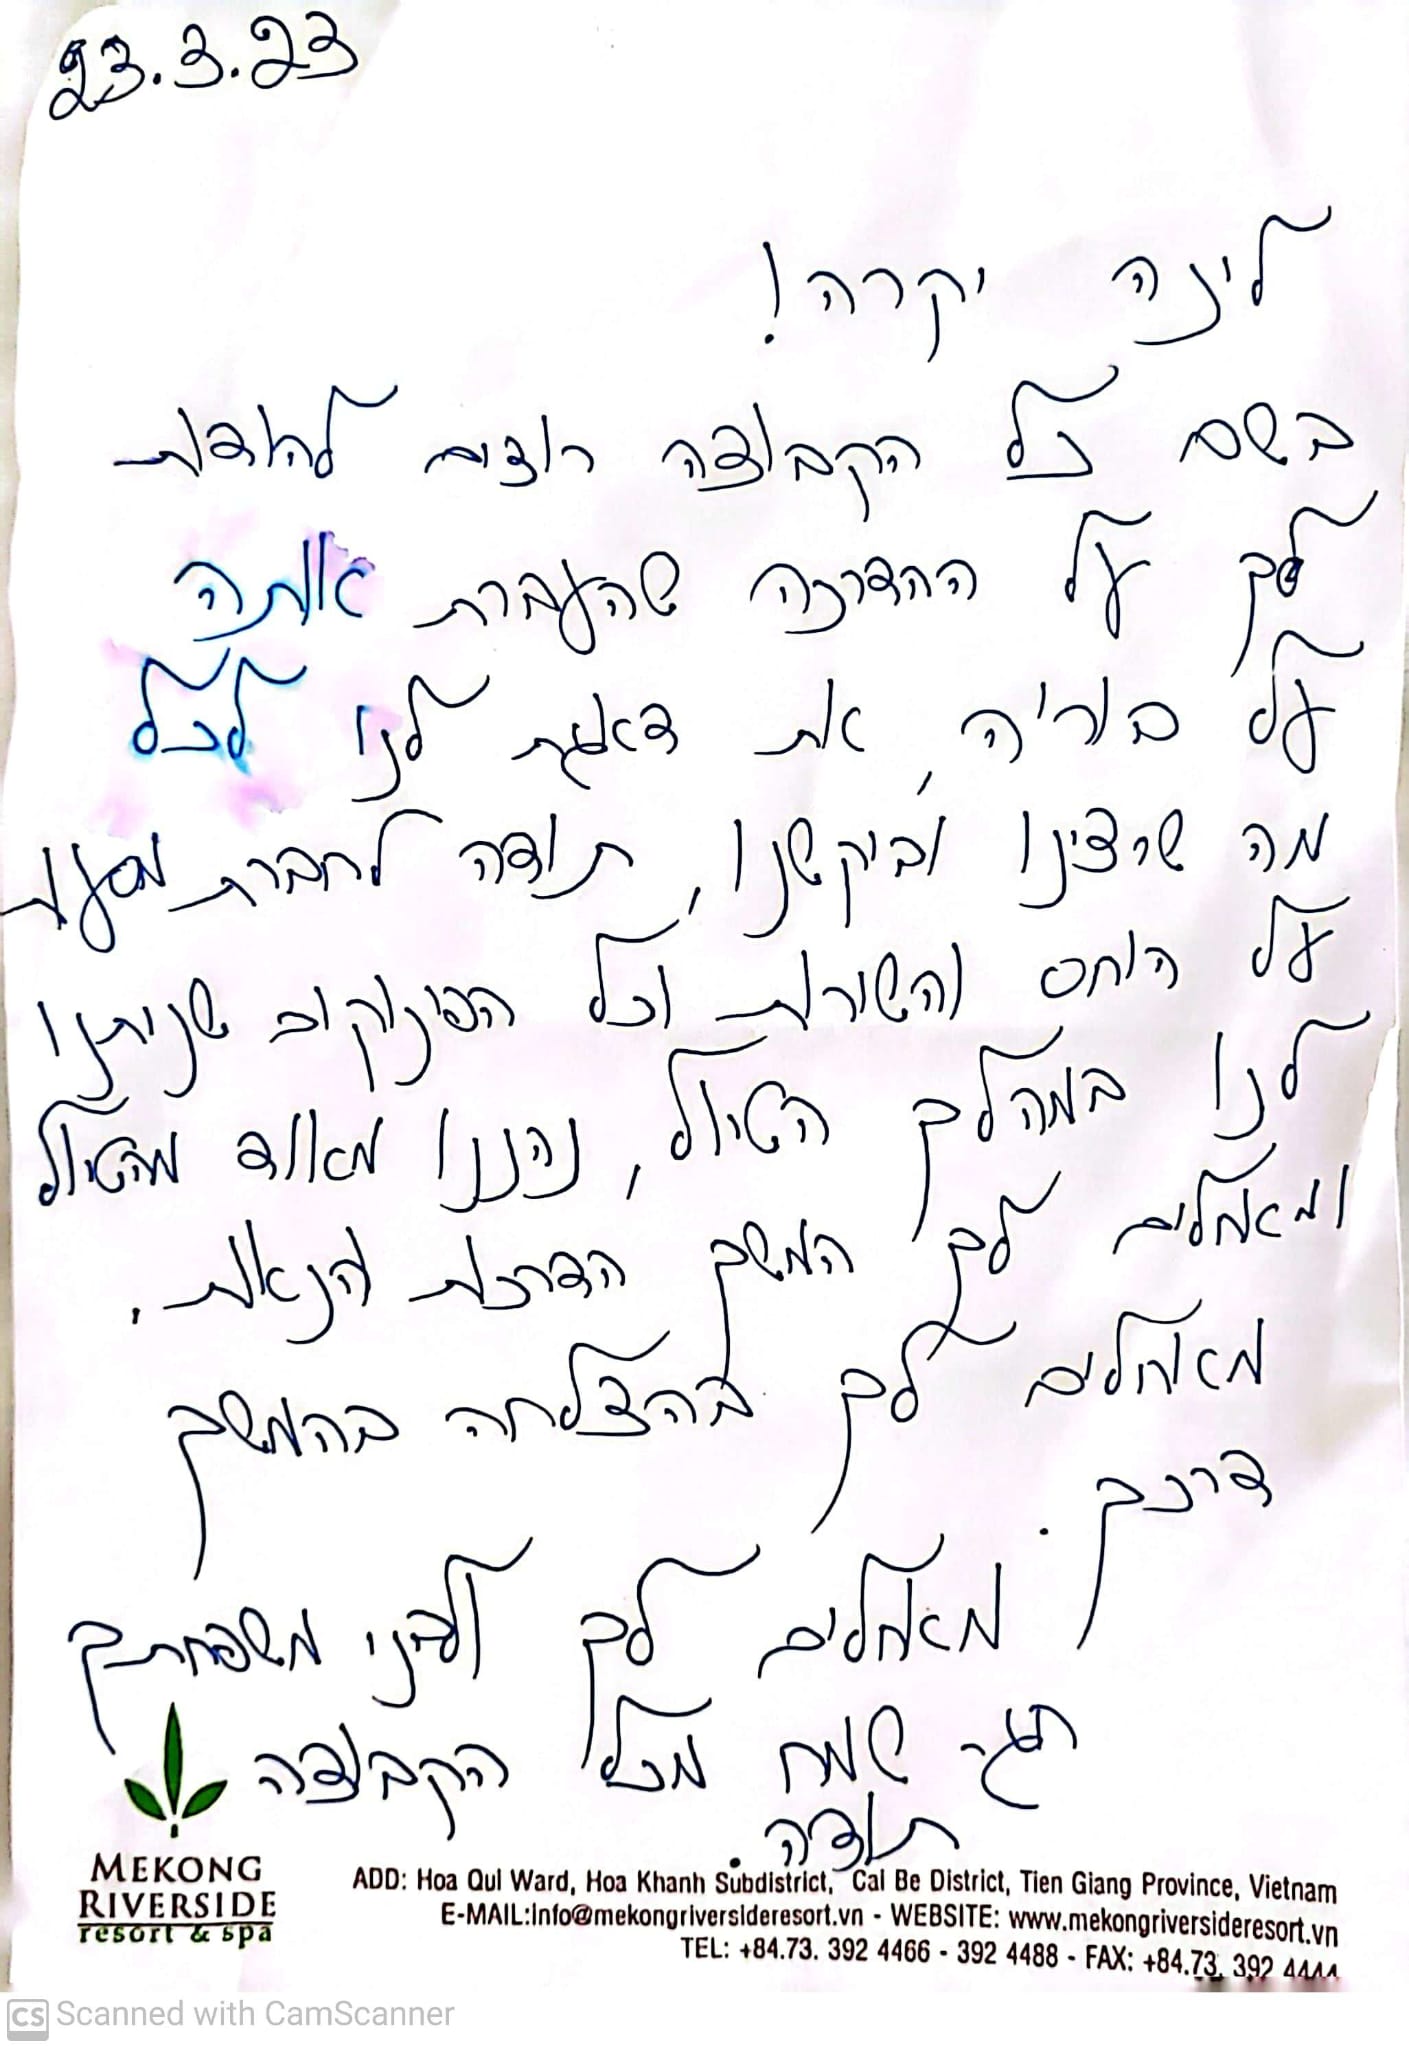 23.3.23
לינה יקרה!
בשם כל הקבוצה רוצים להודות
לך על ההדרכה שהעברת אותה
על בוריה, את דאגת לנו לכל
מה שרצינו וביקשנו, תודה לחברת מסעות
על היחס והשורות וכל הפינוקים שניתנו
לנו במהלך הטיול, נהננו מאוד מהטיול
ומאחלים לך המשך הדרכות הנאות.
מאחלים לך בהצלחה בהמשך
דרכך.
מאחלים לך ולבני משפחתך
חג שמח מכל הקבוצה
תודה.
MEKONG
RIVERSIDE
resort & spa
ADD: Hoa Qui Ward, Hoa Khanh Subdistrict, Cai Be District, Tien Giang Province, Vietnam
E-MAIL:info@mekongriversideresort.vn - WEBSITE: www.mekongriversideresort.vn
TEL: +84.73. 392 4466 - 392 4488 - FAX: +84.73. 392 4444
CS Scanned with CamScanner